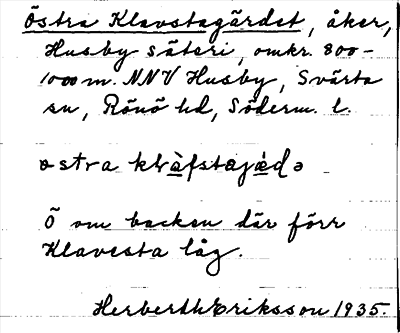 Östra Klavstagärdet, åker,
Husby säteri, omkr. 800-
1000 m. NNV Husby, Svärta
sn, Rönö hd, Söderm. l.
ostra klàfstajæ̀də
Ö om backen där förr
Klavesta låg.
Herberth Eriksson 1935.